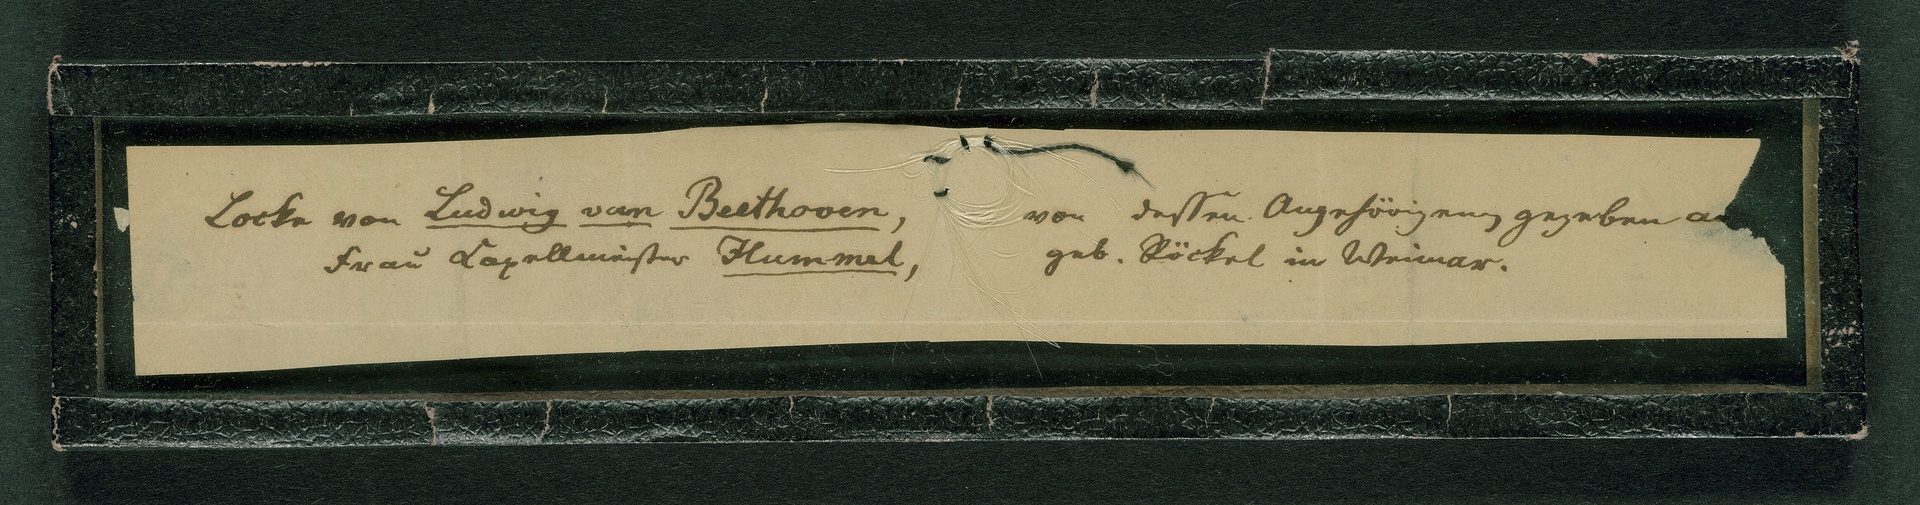 Locke von Ludwig van Beethoven, von dessen Angehörigen gegeben
Frau Capellmeister Hummel, geb. Röckel in Weimar.